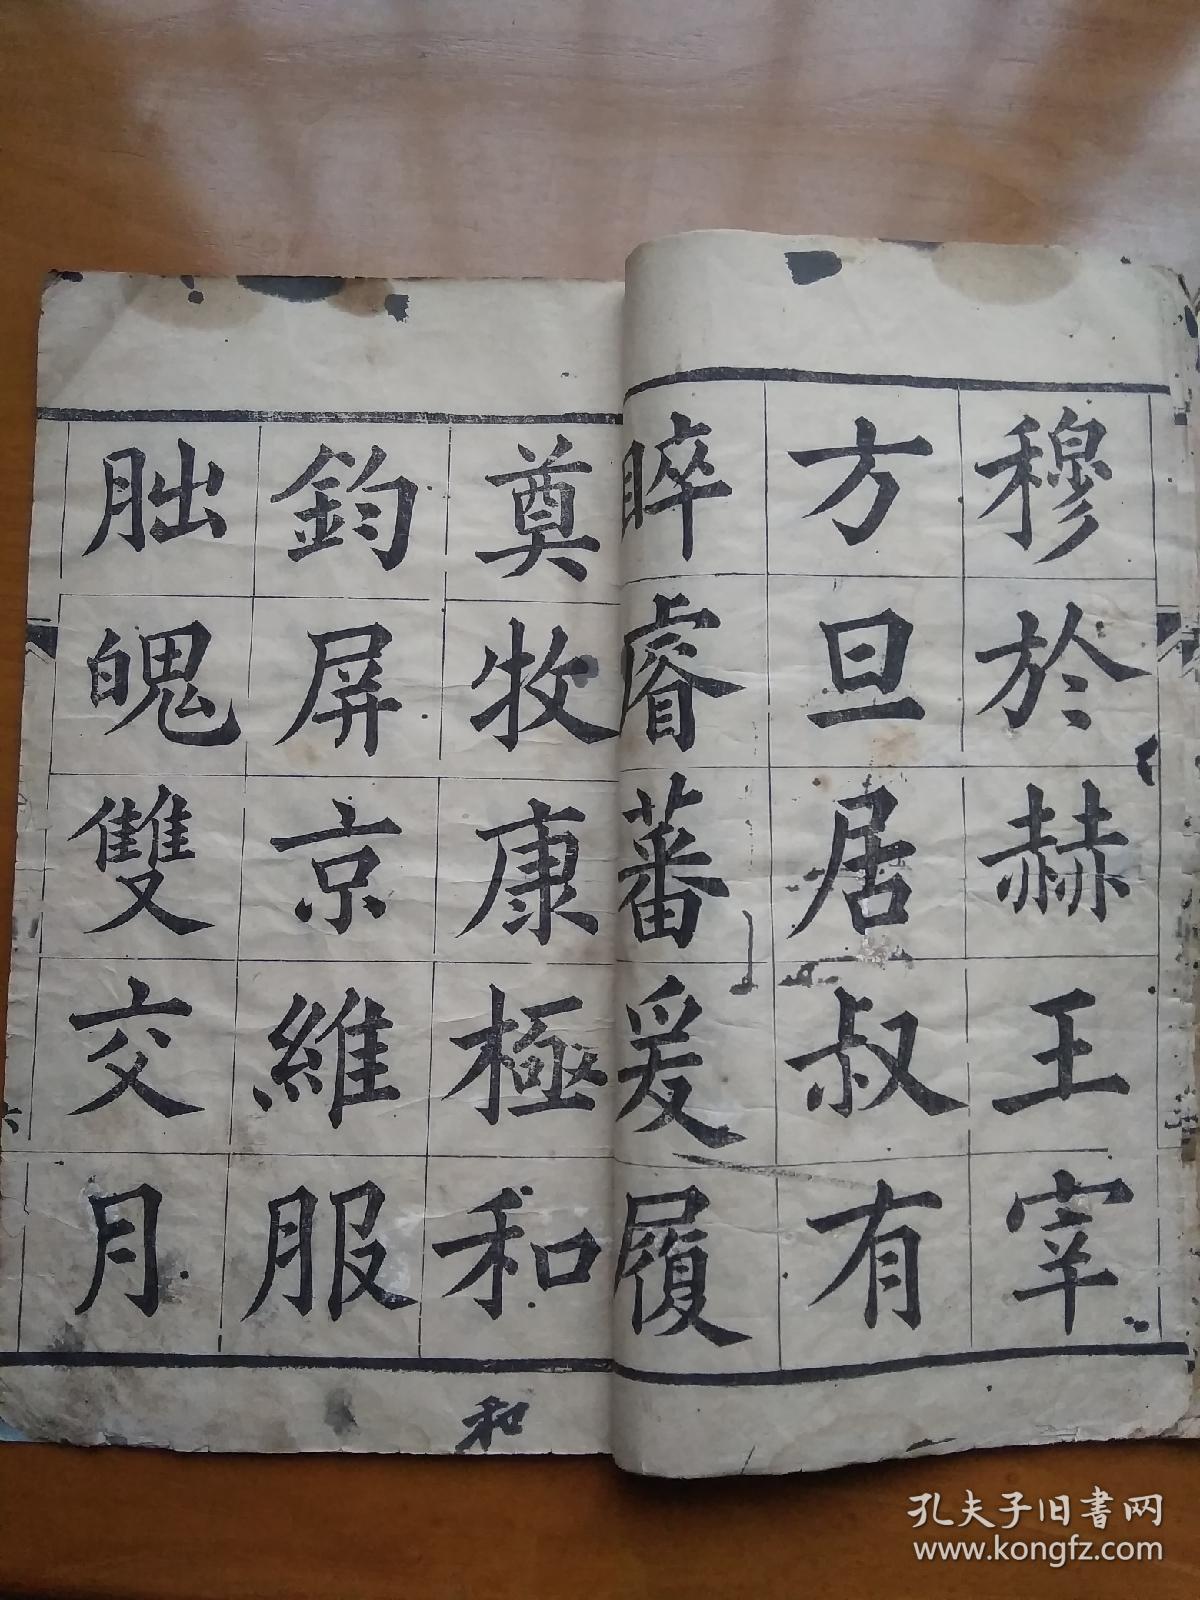 穆於赫王宰
方旦居叔有
睟睿蕃爰履
奠牧康極和
鈞屏京維服
朏魄雙交月
和
六
孔夫子旧書网
www.kongfz.com